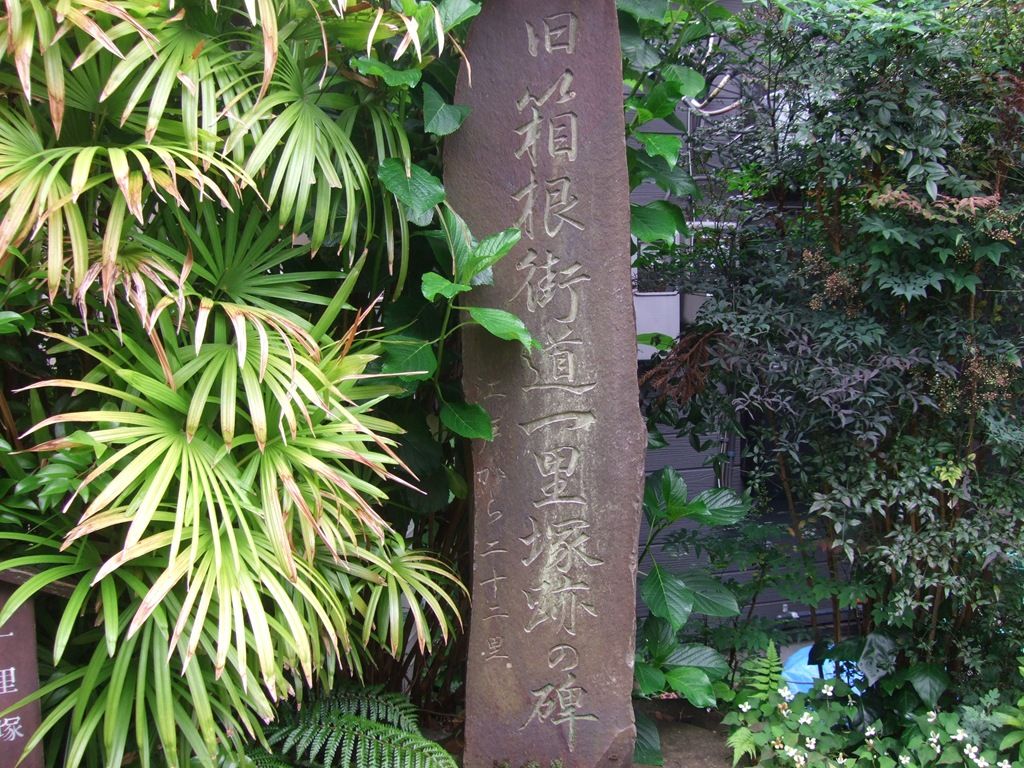 旧箱根街道一里塚跡の碑
江戸から二十二里
一里塚